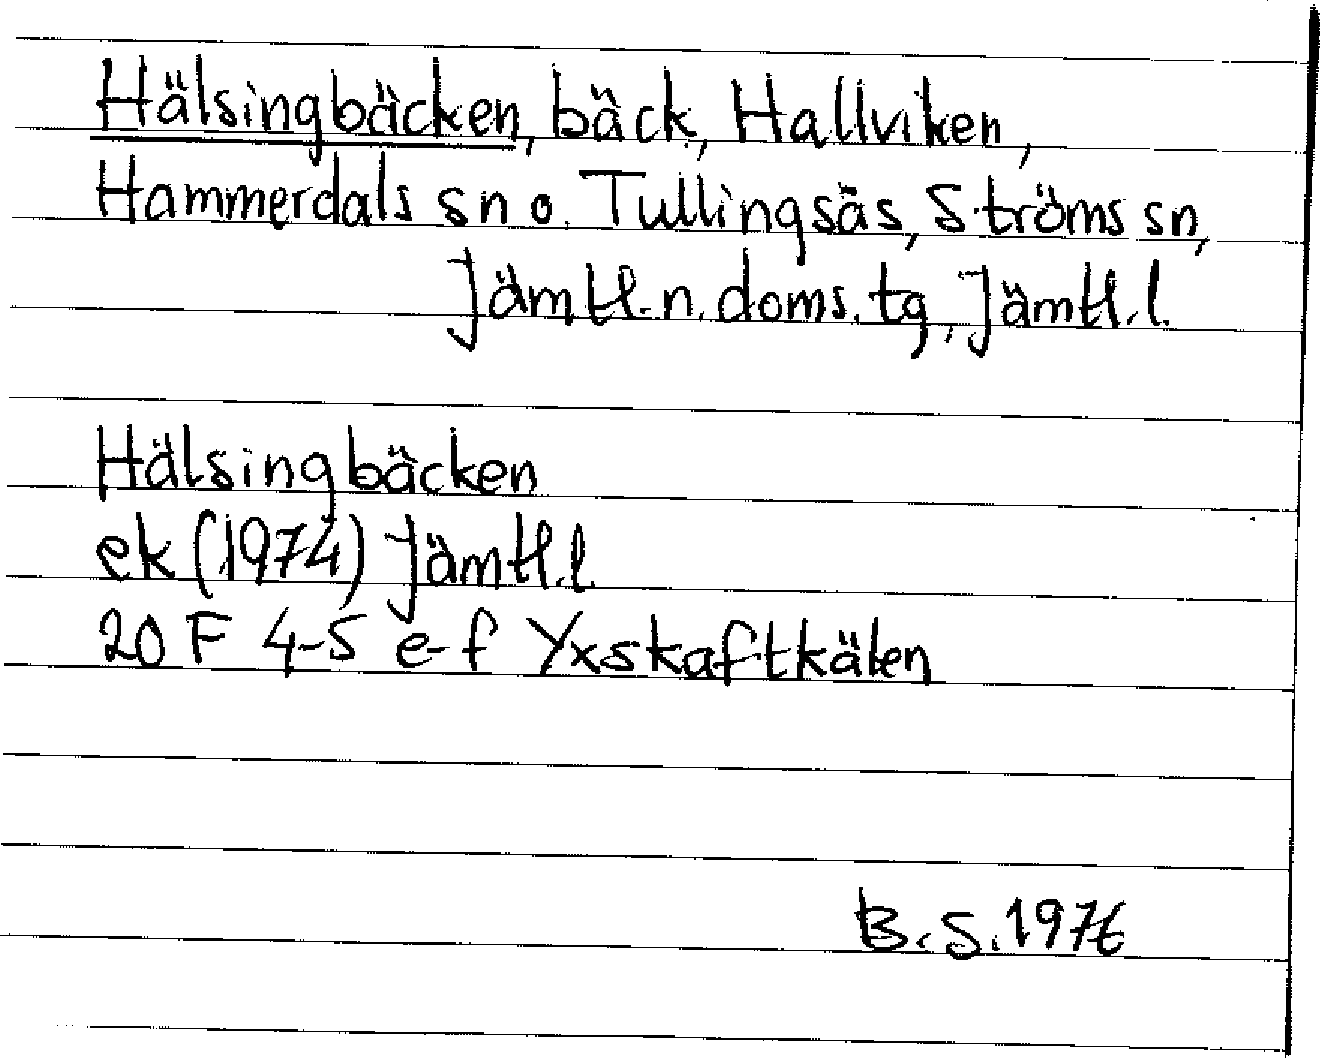 Hälsingbäcken, bäck, Hallviken,
Hammerdals sn o. Tullingsås, Ströms sn,
Jämtl. n. doms. tg, Jämtl. l.
Hälsingbäcken
ek (1974) Jämtl. l
20 F 4-5 e-f Yxskaftkälen
B. S. 1976